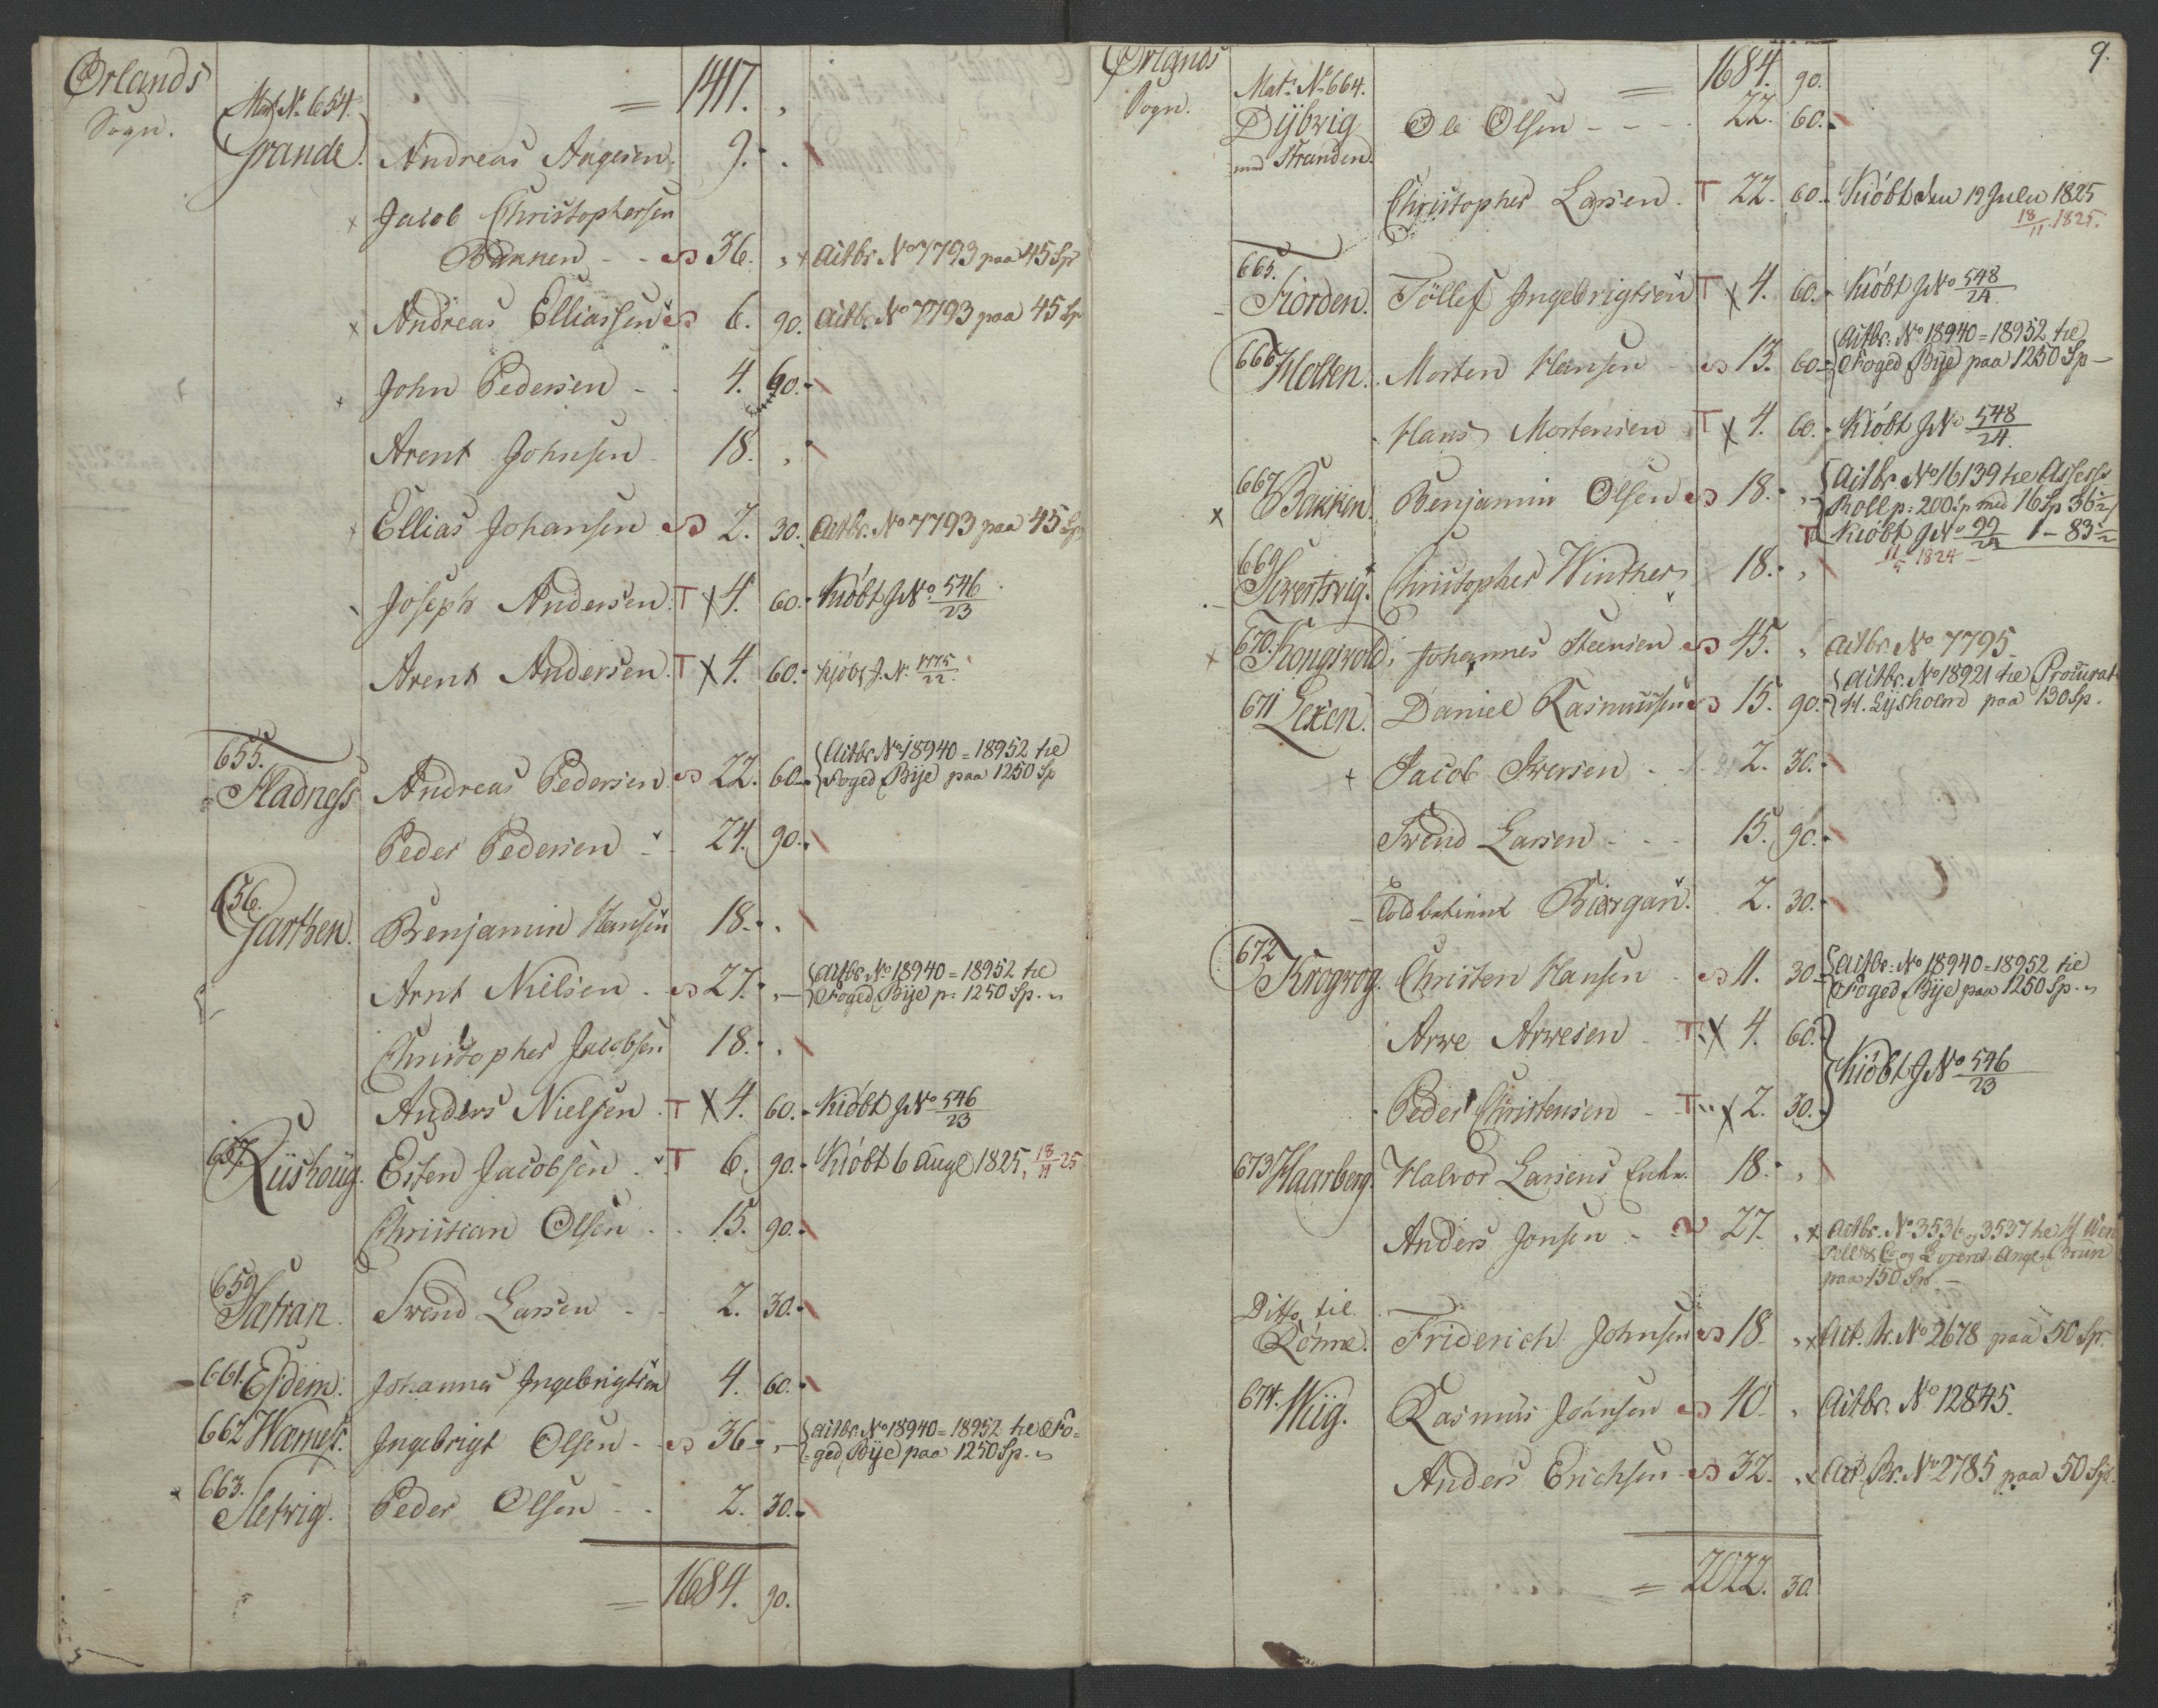 Ørlands
Sogn.
Mat. No. 654. = 1417. "
Grande. Andreas Aagesen. 9. "
Jacob Christophersen
Bakken - - S 36. " x Actbr. No 7793 paa 45 Sp
Andreas Elliassen S 6. 90. Actbr. No 7793 paa 45 Sp
John Pedersen - 4. 60.
Arent Johnsen 18. "
Ellias Johansen S 2. 30. Actbr. No 7793 paa 45 Sp
Joseph Andersen. T x 4. 60. Kiöbt J No 546/23
Arent Andersen. T x 4. 60. Kjöbt J. N. 1775/22.
655.
Hadness Andreas Pedersen S 22. 60. {Actbr. No 18940 = 18952 til
Foged Bije paa 1250 Sp
Peder Pedersen - 24. 90.
656.
Garthen. Benjamin Hansen 18. "
Arnt Nielsen - S 27. " {Actbr. No 18940 = 18952 til
Foged Bije p: 1250 Sp.
Christopher Jacobsen 18. "
Anders Nielsen. T x 4. 60. Kiöbt J No 546/23
657.
Riishoug. Esten Jacobsen. T 6. 90. Kiöbt 6 Augl 1825, 18/11 25
Christian Olsen - 15. 90.
659
Satran. Svend Larsen - 2. 30.
661. Efdem. Johannes Ingebrigtsen 4. 60.
662 Warness. Ingebrigt Olsen - S 36. " {Actbr. No 18940 = 18952 til Fo=
ged Bije paa 1250 Sp.
663.
Sletvig. Peder Olsen - - 2. 30.
= 1684. 90.
9.
Ørlands
Sogn.
Mat. No 664. = 1684. 90.
Dÿbvig Ole Olsen - - - 22. 60.
med Stranden.
Christopher Larsen. T 22. 60. Kiöbt den 19 Julii 1825
18/11 1825.
665.
Fiorden. Töllef Ingebrigtsen T x 4. 60. Kiöbt J No 548/24
666 Holten. Morten Hansen S 13. 60. {Actbr. No 18940 = 18952 til
Foged Bije paa 1250 Sp
Hans Mortensen T x 4. 60. Kiöbt J No 548/24.
667
Bakken. Benjamin Olsen S 18. " {Actbr. No 16139 til Assess
Roll p: 200 Sp med 16 Sp 36
T Kiöbt J No 99/24 1 - 83
11/5 1824
669
Sivertsvig. Christopher Winther 18. "
670.
Kongsvold. Johannes Steensen S 45. " Actbr. No 7795
671
Lexen. Daniel Rasmussen S 15. 90. {Actbr. No 18921 til Procurat
H. Lysholm paa 130 Sp.
Jacob Iversen - 2. 30.
Svend Larsen - - 15. 90.
Toldbetient Biergan. 2. 30.
672
Krogvog. Christen Hansen - S 11. 30. {Actbr. No 18940 = 18952 til
Foged Bije paa 1250 Sp.
Arve Arvesen - T x 4. 60.
Kiöbt J No 546/23
Peder Christensen - T x 2. 30.
673 Haarberg. Halvor Larsens Enke. 18. "
Anders Jonsen - S 27. " x Actbr. No 3536 og 3537 til
paa 150 Sp. -
Ditto til
Rönne. Friderich Johnsen S 18. " x Act. Br. No 2678 paa 50 Sp.
674. Wiig. Rasmus Johnsen S 40. " Actbr. No 12845.
Anders Erichsen S 32. " x Act. Br. No 2785 paa 50 Sp.
= 2022. 30.